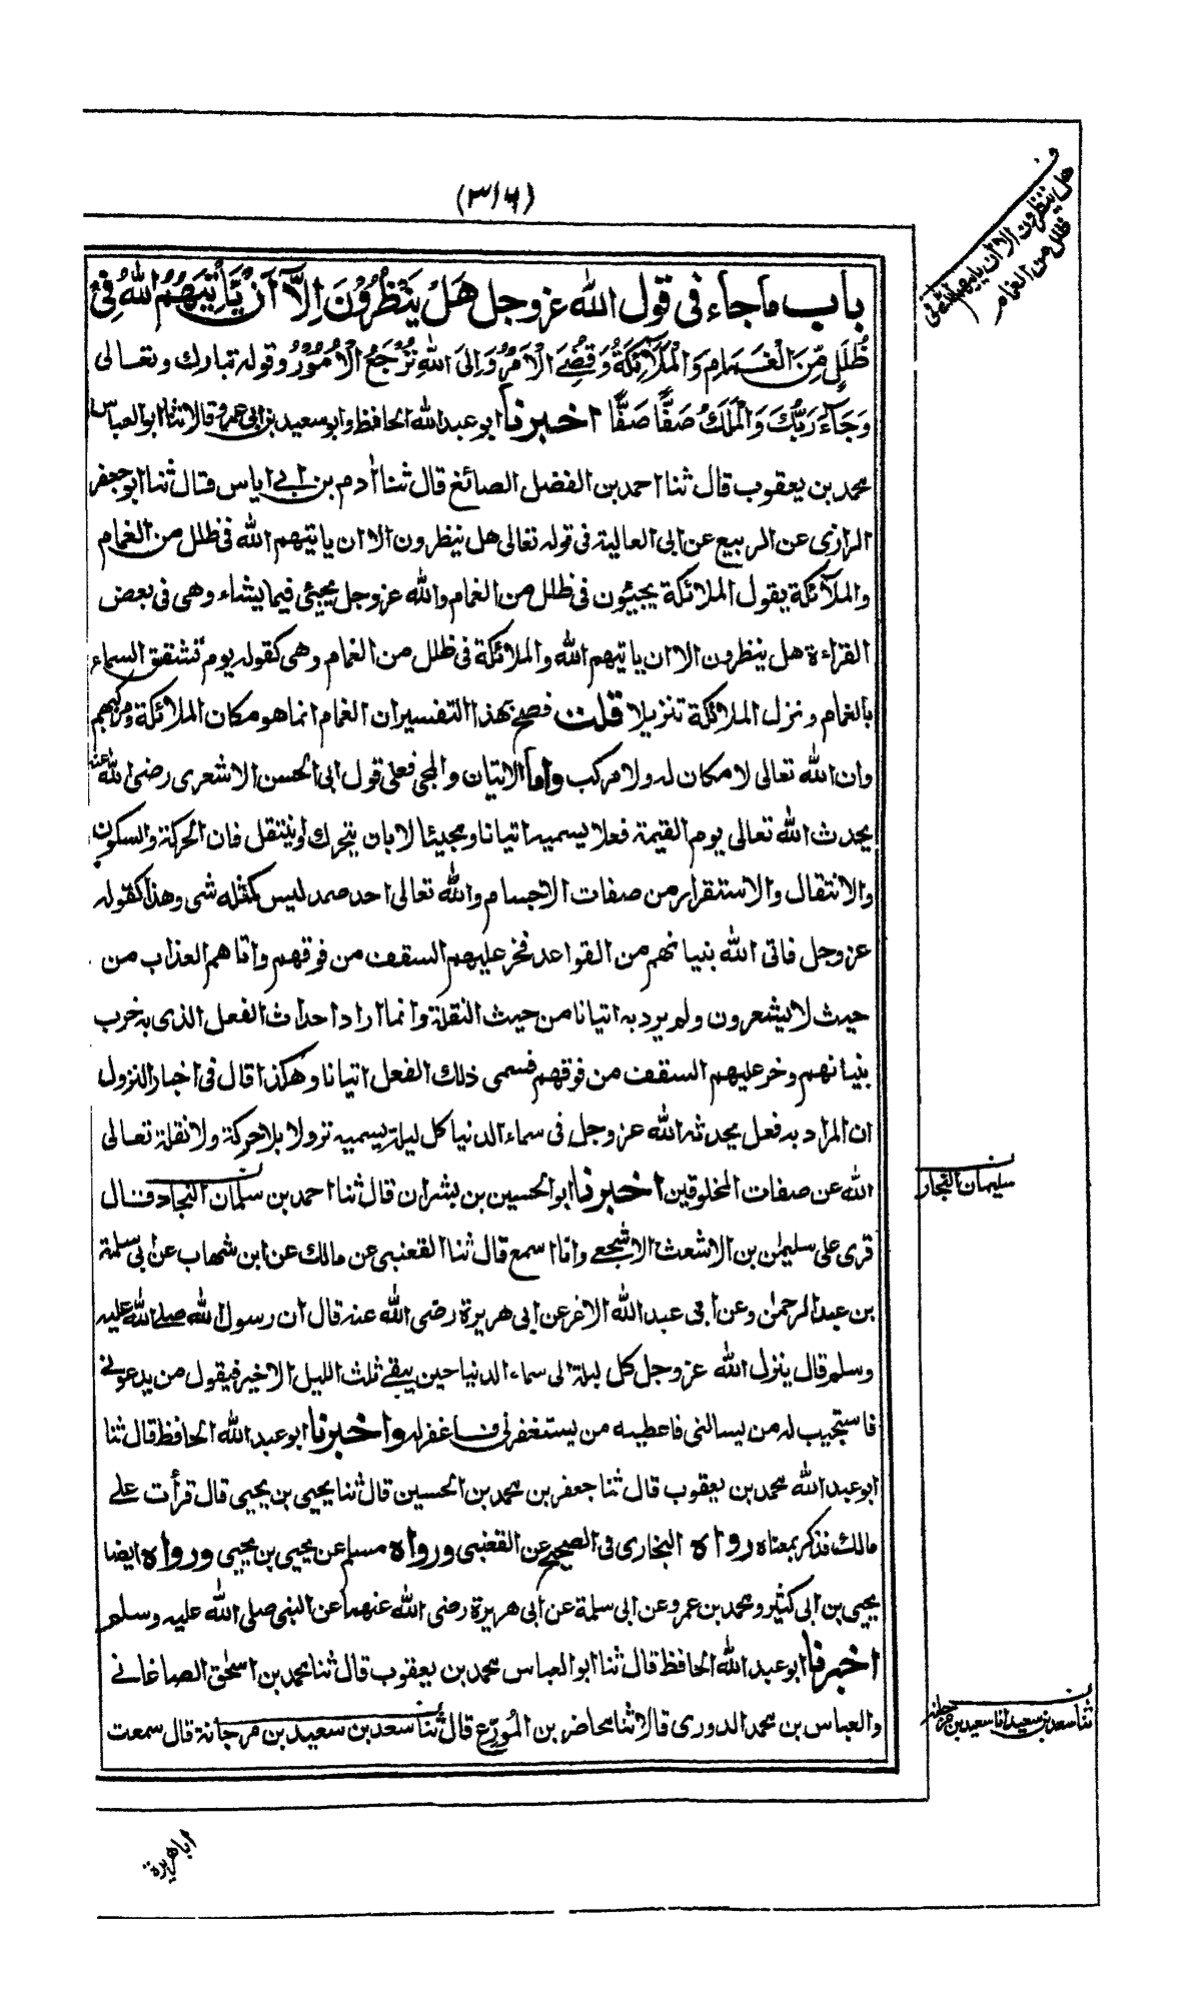 (٣١٦)
ف
هل ينظرون الا ان ياتيهم الله فى
ظلل من الغمام
باب ما جاء فى قول الله عز وجل هَلْ يَنْظُرُوْنَ اِلَّآ اَنْ يَّأْتِيَهُمُ اللّٰهُ فِىْ
ظُلَلٍ مِّنَ الْغَمَامِ وَالْمَلَآئِكَةُ وَقُضِىَ الْاَمْرُ وَاِلَى اللّٰهِ تُرْجَعُ الْاُمُوْرُ وقوله تبارك وتعالى
وَجَآءَ رَبُّكَ وَالْمَلَكُ صَفًّا صَفًّا اخبرنا ابو عبد الله الحافظ وابو سعيد بن ابى عمرو قالا ثنا ابو العباس
محمد بن يعقوب قال ثنا احمد بن الفضل الصائغ قال ثنا اٰدم بن ابى اياس قال ثنا ابو جعفر
الرازى عن الربيع عن ابى العالية فى قوله تعالى هل ينظرون الا ان ياتيهم الله فى ظلل من الغمام
والملآئكة يقول الملائكة يجيئون فى ظلل من الغمام والله عز وجل يجيئ فيما يشاء وهى فى بعض
القراءة هل ينظرون الا ان ياتيهم الله والملائكة فى ظلل من الغمام وهى كقوله يوم تشقق السماء
بالغمام ونزل الملائكة تنزيلا قلت فصح بهذا التفسير ان الغمام انما هو مكان الملائكة ومركبهم
وان الله تعالى لا مكان له ولا مركب واما الاتيان والمجى فعلى قول ابى الحسن الاشعرى رضى الله عنه
يحدث الله تعالى يوم القيمة فعلا يسميه اتيانا ومجيئا لا بان يتحرك او ينتقل فان الحركة والسكون
والانتقال والاستقرار من صفات الاجسام والله تعالى احد صمد ليس كمثله شى وهذا كقوله
عز وجل فاتى الله بنيانهم من القواعد فخر عليهم السقف من فوقهم واتاهم العذاب من
حيث لا يشعرون ولم يرد به اتيانا من حيث النقلة وانما اراد احداث الفعل الذى به خرب
بنيانهم وخر عليهم السقف من فوقهم فسمى ذلك الفعل اتيانا وهكذا قال فى اخبار النزول
ان المراد به فعل يحدثه الله عز وجل فى سماء الدنيا كل ليلة يسميه نزولا بلا حركة ولا نقلة تعالى
الله عن صفات المخلوقين اخبرنا ابو الحسين بن بشران قال ثنا احمد بن سلمان النجاد قال
ن
سليمان النجار
قرى على سليمٰن بن الاشعث الاشجعى وانا اسمع قال ثنا القعنبى عن مالك عن ابن شهاب عن ابى سلمة
بن عبد الرحمٰن وعن ابى عبد الله الاغر عن ابى هريرة رضى الله عنه قال ان رسول الله صلى الله عليه
وسلم قال ينزل الله عز وجل كل ليلة الى سماء الدنيا حين يبقى ثلث الليل الاخير فيقول من يدعونى
فاستجيب له من يسالنى فاعطيه من يستغفرنى فاغفر له واخبرنا ابو عبد الله الحافظ قال ثنا
ابو عبد الله محمد بن يعقوب قال ثنا جعفر بن محمد بن الحسين قال ثنا يحيى بن يحيى قال قرأت على
مالك فذكر بمعناه رواه البخارى فى الصحيح عن القعنبى ورواه مسلم عن يحيى بن يحيى ورواه ايضا
يحيى بن ابى كثير ومحمد بن عمرو عن ابى سلمة عن ابى هريرة رضى الله عنهما عن النبى صلى الله عليه وسلم
اخبرنا ابو عبد الله الحافظ قال ثنا ابو العباس محمد بن يعقوب قال ثنا محمد بن اسحٰق الصاغانى
والعباس بن محمد الدورى قالا ثنا محاضر بن المُوَرِّع قال ثنا سعد بن سعيد بن مرجانة قال سمعت
ن
ثنا سعد بن سعيد انا سعيد بن مرجانه
اباهريرة